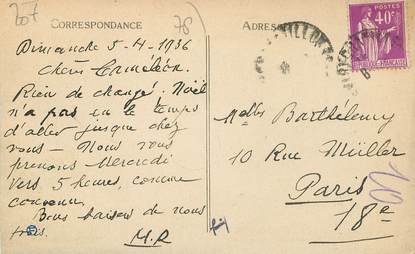 207
78)
CORRESPONDANCE
Dimanche 5-4-1936
chers Caméléon.
Rien de changé. Noël
n'a pas eu le temps
d'aller jusque chez
vous – Nous vous
prenons Mercredi
vers 5 heures, comme
convenu.
Bons baisers de nous
tous.
M.R
ADRES
40c
POSTES
Melles Barthélemy
10 Rue Müller
Paris
18e